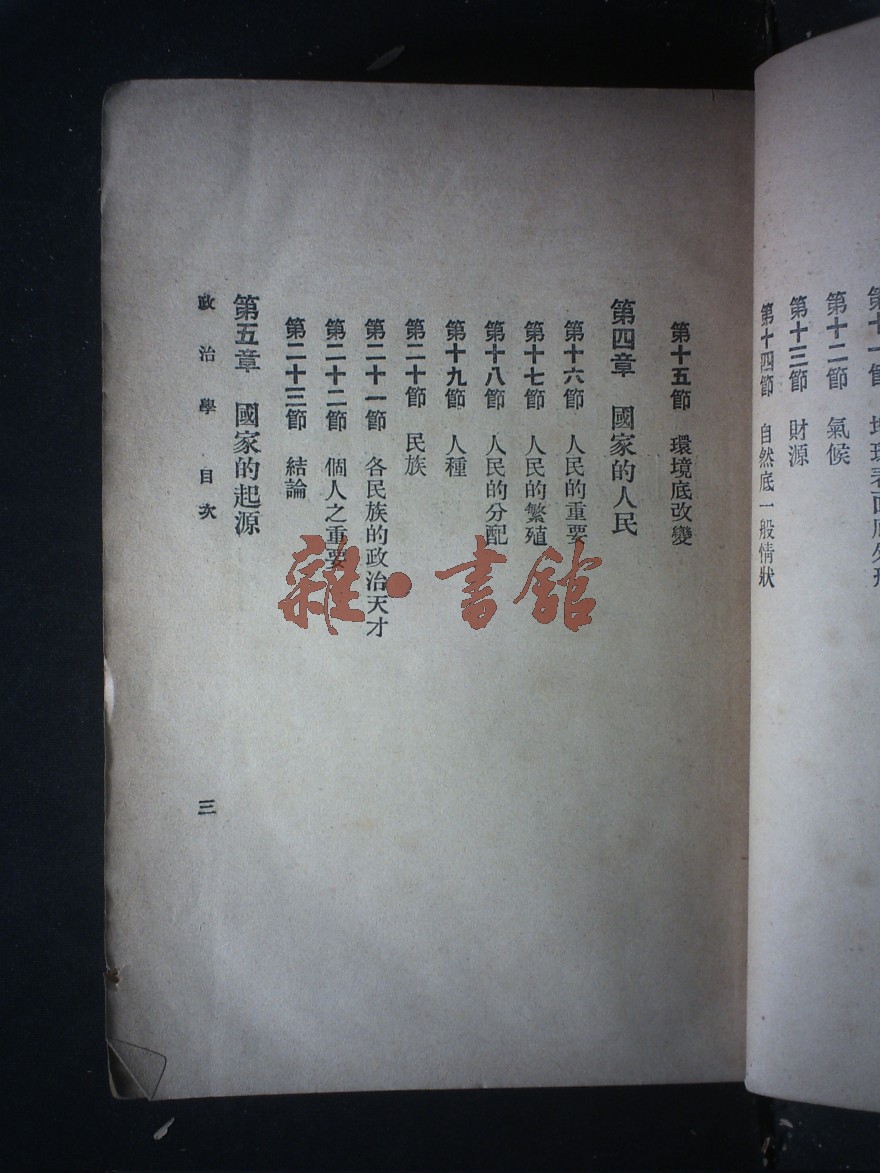 第十一節
第十二節　氣候
第十三節　財源
第十四節　自然底一般情狀
第十五節　環境底改變
第四章　國家的人民
第十六節　人民的重要
第十七節　人民的繁殖
第十八節　人民的分配
第十九節　人種
第二十節　民族
第二十一節　各民族的政治天才
第二十二節　個人之重要
第二十三節　結論
第五章　國家的起源
政治學　目次
三
雜·書館